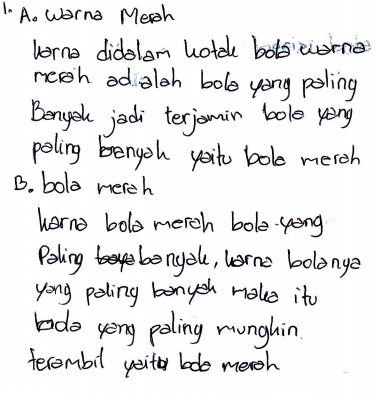 1. A. Warna Merah
karna didalam kotak bola warna
merah adalah bola yang paling
Banyak jadi terjamin bola yang
paling banyak yaitu bola merah
B. bola merah
karna bola merah bola yang
Paling banyak, karna bolanya
yang paling banyak maka itu
bola yang paling mungkin
terambil yaitu bola merah